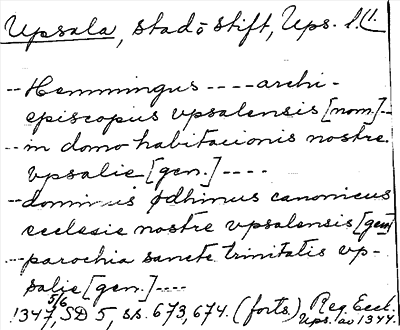 Upsala, stad o stift, Ups. l. (1.
-- Hemmingus ---- archi-
episcopus vpsalensis [nom.] --
-- in domo habitacionis nostre
vpsalie [gen.] ----
-- dominus Odhinus canonicus
ecclesie nostre vpsalensis [gen]
-- parochia sancte trinitatis vp-
salie [gen.] ----
1347 5/6, SD 5, ss. 673, 674. (forts.) Reg. Eccl.
Ups. av 1344.